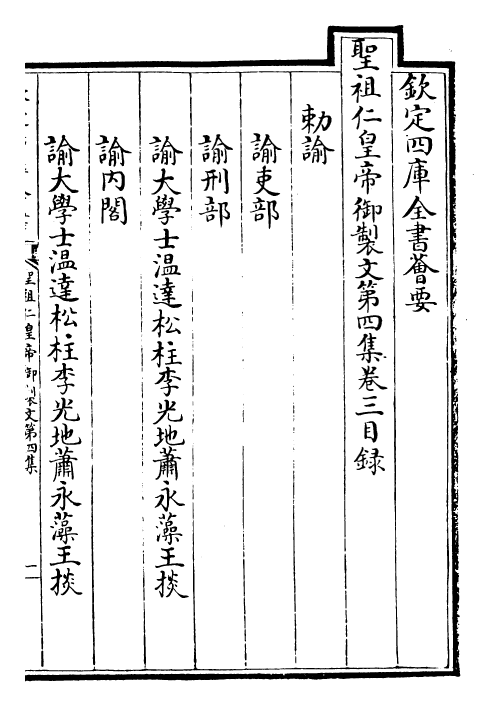 欽定四庫全書薈要
聖祖仁皇帝御製文第四集卷三目録
勅諭
諭吏部
諭刑部
諭大學士温達松柱李光地蕭永藻王掞
諭内閣
諭大學士温達松柱李光地蕭永藻王掞
聖祖仁皇帝御製文第四集